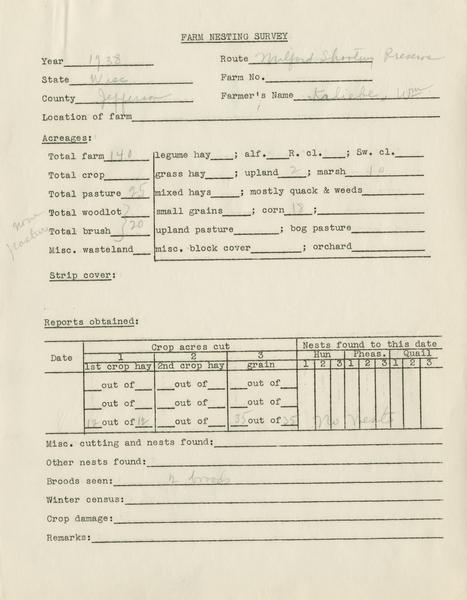 FARM NESTING SURVEY
Year 1938 Route Milford Shooting Preserve
State Wisc Farm No.
County Jefferson Farmer's Name Wm
Location of farm
Acreages:
Total farm 140 legume hay ; alf. R. cl. ; Sw. cl.
Total crop grass hay ; upland 2 ; marsh 10
Total pasture 25 mixed hays ; mostly quack & weeds
Total woodlot small grains ; corn 18 ;
Total brush } 20 upland pasture ; bog pasture
Misc. wasteland misc. block cover ; orchard
Strip cover:
Reports obtained:
Crop acres cut Nests found to this date
Date 1 2 3 Hun Pheas. Quail
1st crop hay 2nd crop hay grain 1 2 3 1 2 3 1 2 3
out of out of out of
out of out of out of
12 out of 12 out of 35 out of 35 No Nests
Misc. cutting and nests found:
Other nests found:
Broods seen: 2 broods
Winter census:
Crop damage:
Remarks: